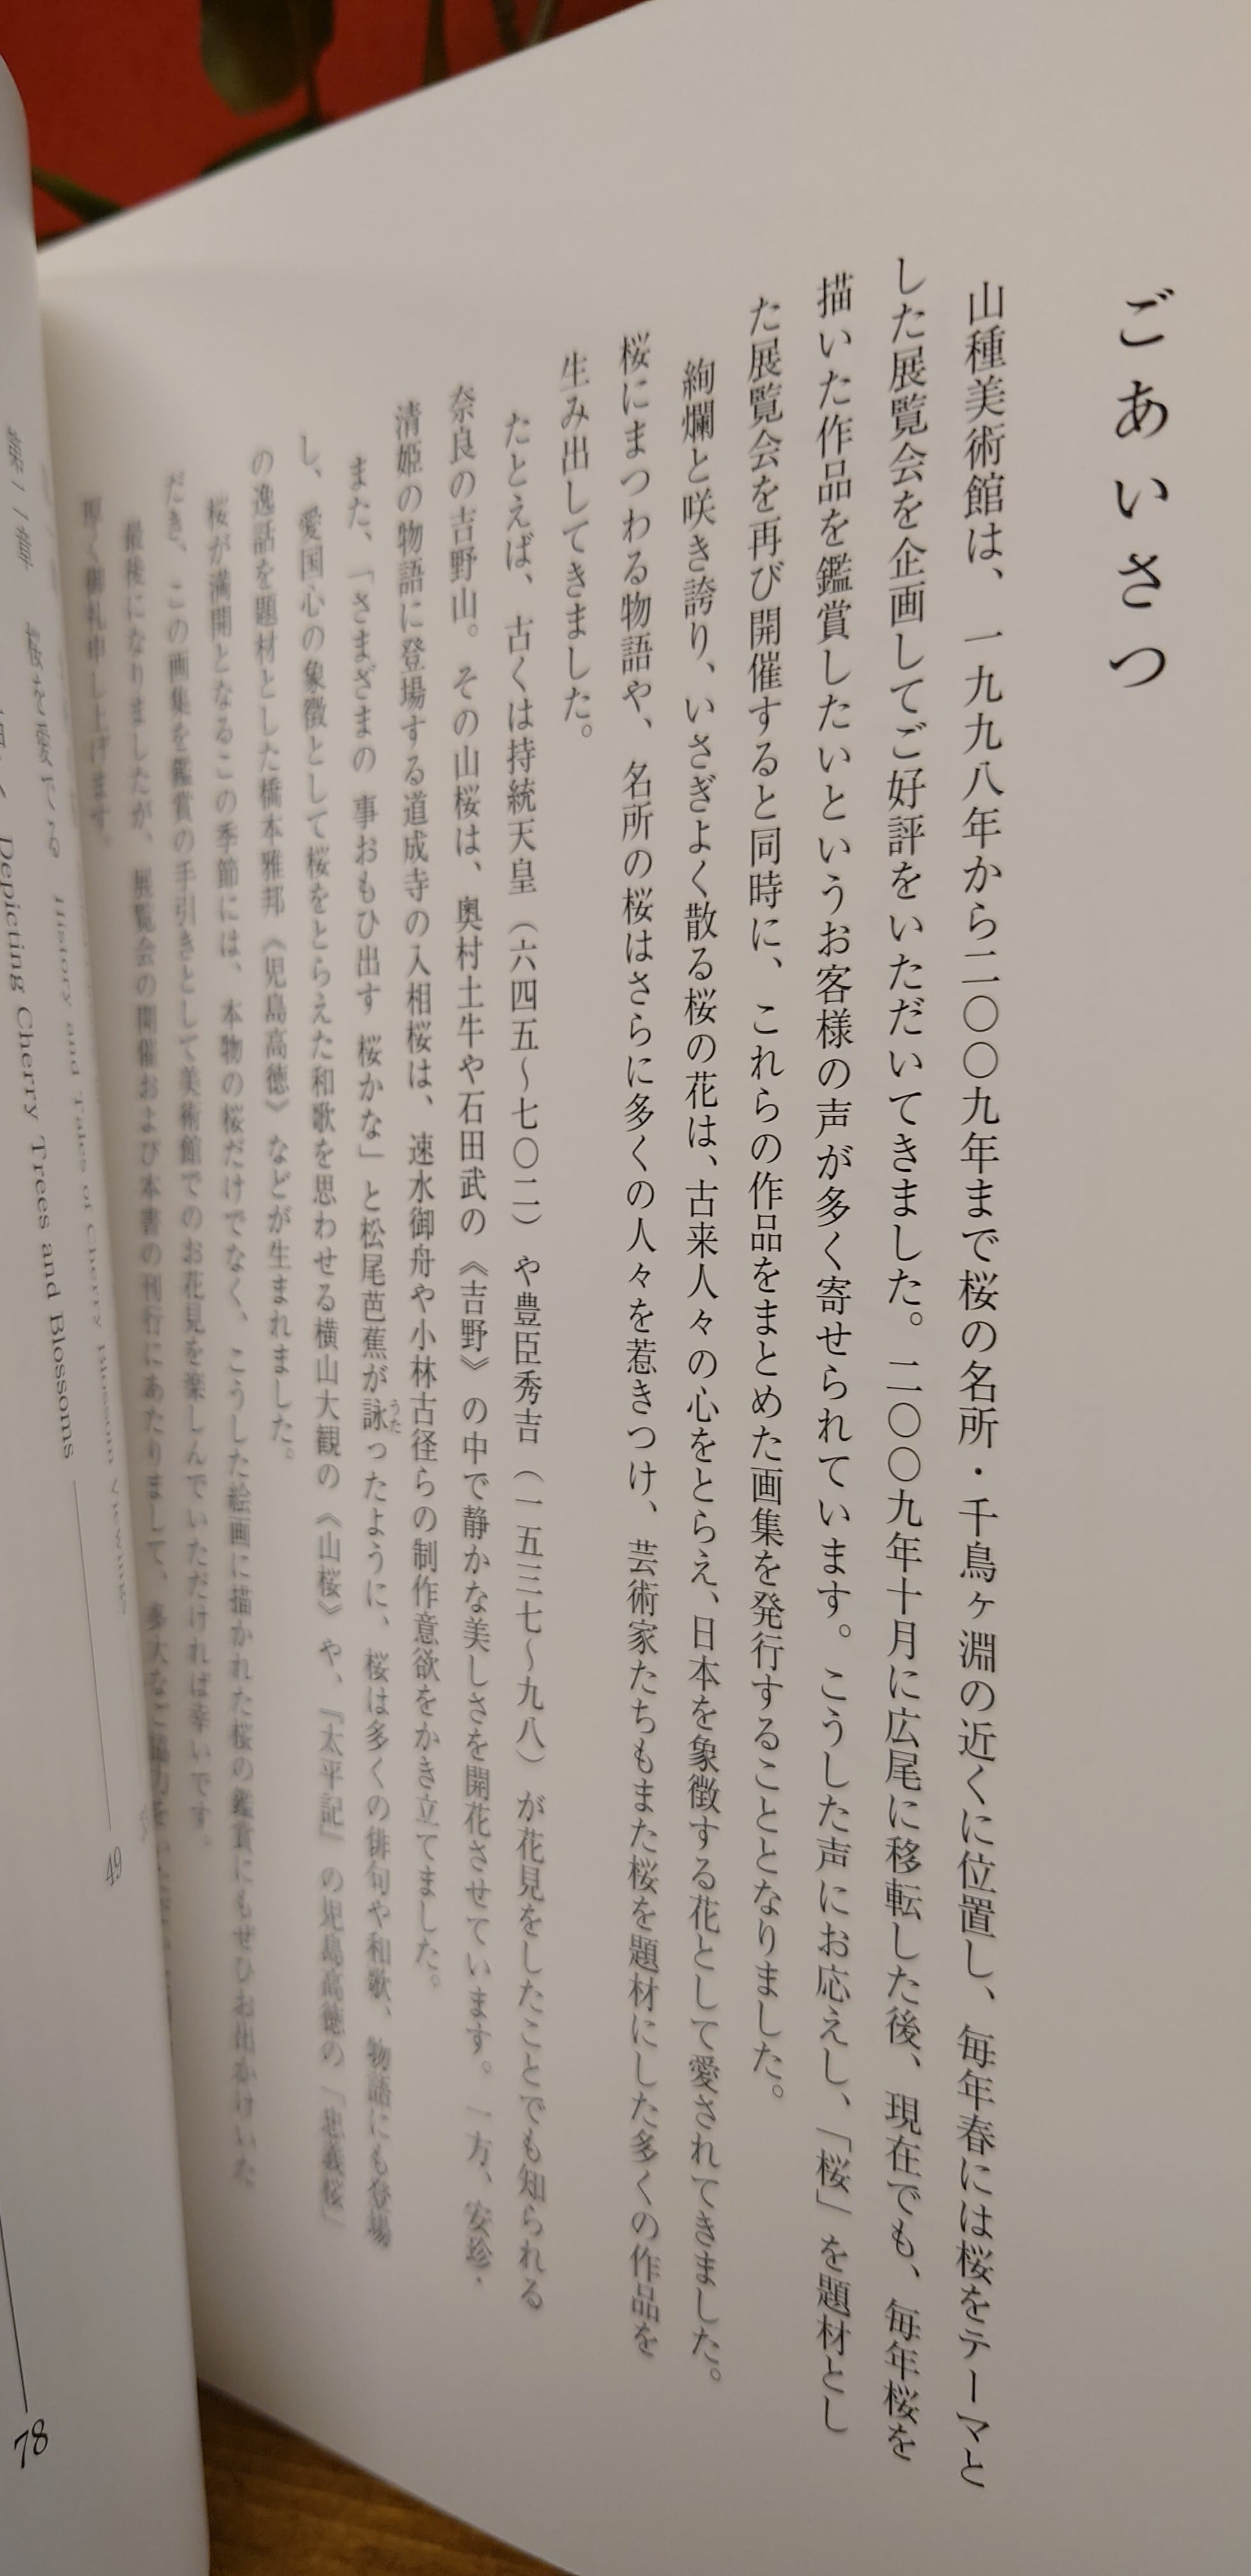 ごあいさつ
山種美術館は、一九九八年から二〇〇九年まで桜の名所・千鳥ヶ淵の近くに位置し、毎年春には桜をテーマと
した展覧会を企画してご好評をいただいてきました。二〇〇九年十月に広尾に移転した後、現在でも、毎年桜を
描いた作品を鑑賞したいというお客様の声が多く寄せられています。こうした声にお応えし、「桜」を題材とし
た展覧会を再び開催すると同時に、これらの作品をまとめた画集を発行することとなりました。
絢爛と咲き誇り、いさぎよく散る桜の花は、古来人々の心をとらえ、日本を象徴する花として愛されてきました。
桜にまつわる物語や、名所の桜はさらに多くの人々を惹きつけ、芸術家たちもまた桜を題材にした多くの作品を
生み出してきました。
たとえば、古くは持統天皇（六四五～七〇二）や豊臣秀吉（一五三七～九八）が花見をしたことでも知られる
奈良の吉野山。その山桜は、奥村土牛や石田武の《吉野》の中で静かな美しさを開花させています。一方、安珍・
清姫の物語に登場する道成寺の入相桜は、速水御舟や小林古径らの制作意欲をかき立てました。
また、「さまざまの 事おもひ出す 桜かな」と松尾芭蕉が詠うたったように、桜は多くの俳句や和歌、物語にも登場
し、愛国心の象徴として桜をとらえた和歌を思わせる横山大観の《山桜》や、『太平記』の児島高徳の「忠義桜」
の逸話を題材とした橋本雅邦《児島高徳》などが生まれました。
桜が満開となるこの季節には、本物の桜だけでなく、こうした絵画に描かれた桜の鑑賞にもぜひお出かけいた
だき、この画集を鑑賞の手引きとして美術館でのお花見を楽しんでいただければ幸いです。
最後になりましたが、展覧会の開催および本書の刊行にあたりまして、多大なご協力を
厚く御礼申し上げます。
History and Tales of Cherry Blossoms
49
第二章 桜を愛でる
Depicting Cherry Trees and Blossoms
78